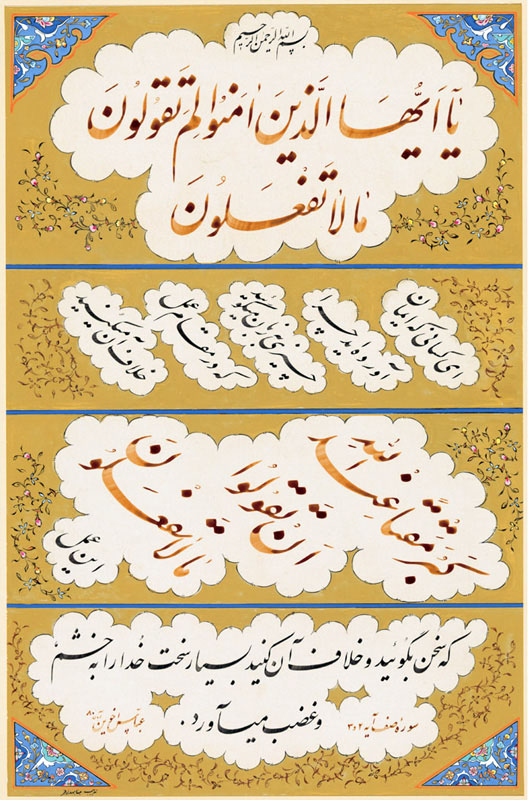 بسم الله الرحمن الرحیم
یا ایها الذین امنوا لم تقولون
ما لا تفعلون
ای کسانی که ایمان
آورده‌اید چرا
چیزی بزبان میگوئید
که در مقام عمل
خلاف آن میکنید
کبر مقتا عند الله
ان تقولوا
ما لا تفعلون
این عمل
که سخن بگوئید و خلاف آن کنید بسیار سخت خدا را به خشم
و غضب میآورد.
سوره صف آیه ۲ و ۳